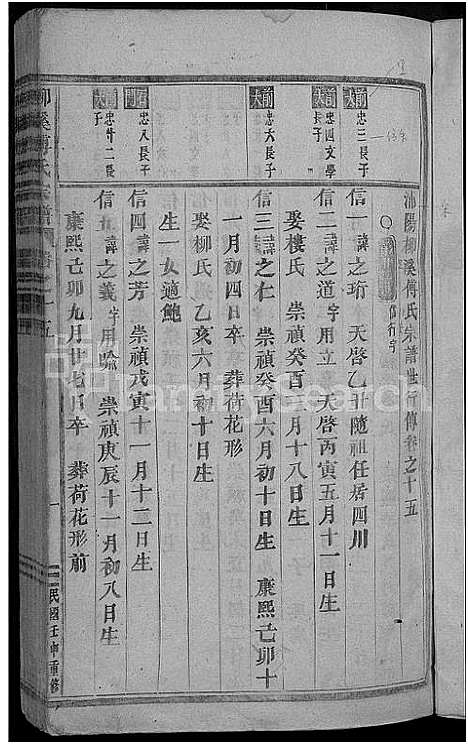 沛陽柳溪傅氏宗譜世行傳卷之十五
信行字
前大
忠三長子
信一諱之珩 天啓乙丑隨祖任居四川
忠四文學長子
信二諱之道字用立 天啓丙寅五月十一日生
娶樓氏 崇禎癸酉三月十八日生
前大
忠六長子
信三諱之仁 崇禎癸酉六月初十日生 康熙己卯十
一月初四日卒 葬荷花形
娶柳氏 乙亥六月初十日生
生一女適鮑
忠八長子
信四諱之芳 崇禎戊寅十一月十二日生
忠廿二長子
信五諱之義字用喻 崇禎庚辰十一月初八日生
康熙己卯九月廿七日卒 葬荷花形前
柳溪傅氏宗譜 卷之十五
一
民國壬申重修
FamilySearch